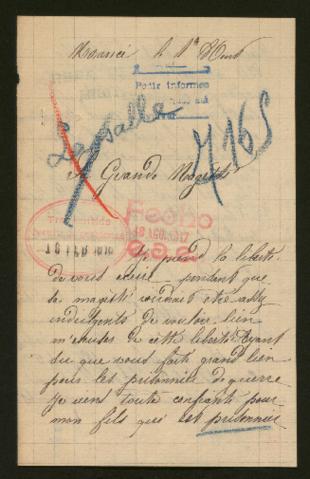 le 1er Aout
Pedir informes
La Salle
7165
A Grande Magesté
Fecho
Je prend la liberté
de vous écrire pendant que
sa magesté voudrait être assez
indulgente de vouloir bien
m'excuser de cette liberté Ayant
du que vous fait grand bien
pour les prisonnier de guerre
Je viens toute confiante pour
mon fils qui est prisonnier